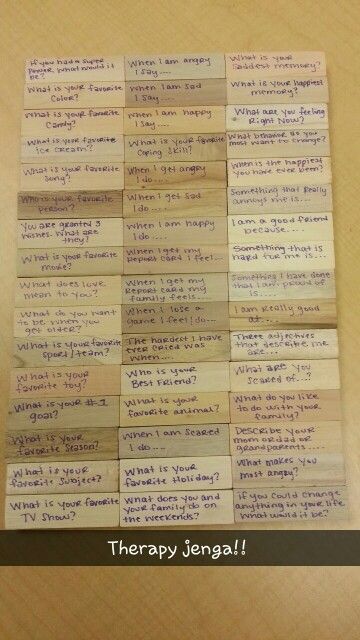 If you had a super
power, what would it
be?
What is your favorite
Color?
What is your favorite
Candy?
What is your favorite
ice cream?
What is your favorite
Song?
Who is your favorite
person?
You are granted 3
wishes. What are
they?
What is your favorite
movie?
What does love
mean to you?
What do you want
to be when you
get older?
What is your favorite
sport/team?
What is your
favorite toy?
What is your #1
goal?
What is your
favorite Season?
What is your
favorite Subject?
What is your favorite
TV Show?
When I am angry
I say....
When I am sad
I say....
When I am happy
I say....
What is your favorite
Coping Skill?
When I get angry
I do....
When I get sad
I do....
When I am happy
I do....
When I get my
Report card I feel...
When I get my
Report card my
family feels...
When I lose a
game I feel/do...
The hardest I have
ever cried was
when....
Who is your
Best Friend?
What is your
favorite animal?
When I am scared
I do....
What is your
favorite Holiday?
What does you and
your family do on
the weekends?
What is your
saddest memory?
What is your happiest
memory?
What are you feeling
Right Now?
What behavior do you
most want to change?
When is the happiest
you have ever been?
Something that Really
annoys me is...
I am a good friend
because....
Something that is
hard for me is...
Something I have done
that I am proud of
is....
I am Really good
at....
Three adjectives
that describe me
are...
What are you
scared of...?
What do you like
to do with your
family?
Describe your
mom or dad or
grandparents....
What makes you
most angry?
If you could change
anything in your life
what would it be?
Therapy jenga!!